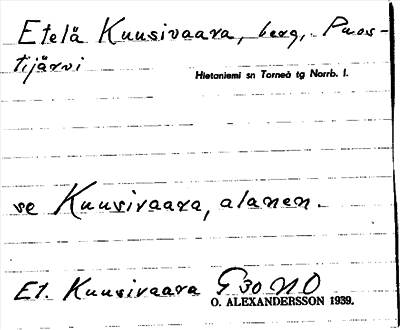 Etelä Kuusivaara, berg, Puos-
tijärvi
Hietaniemi sn Torneå tg Norrb. l.
se Kuusivaara, alanen.
Et. Kuusivaara G30 NO
O. ALEXANDERSSON 1939.